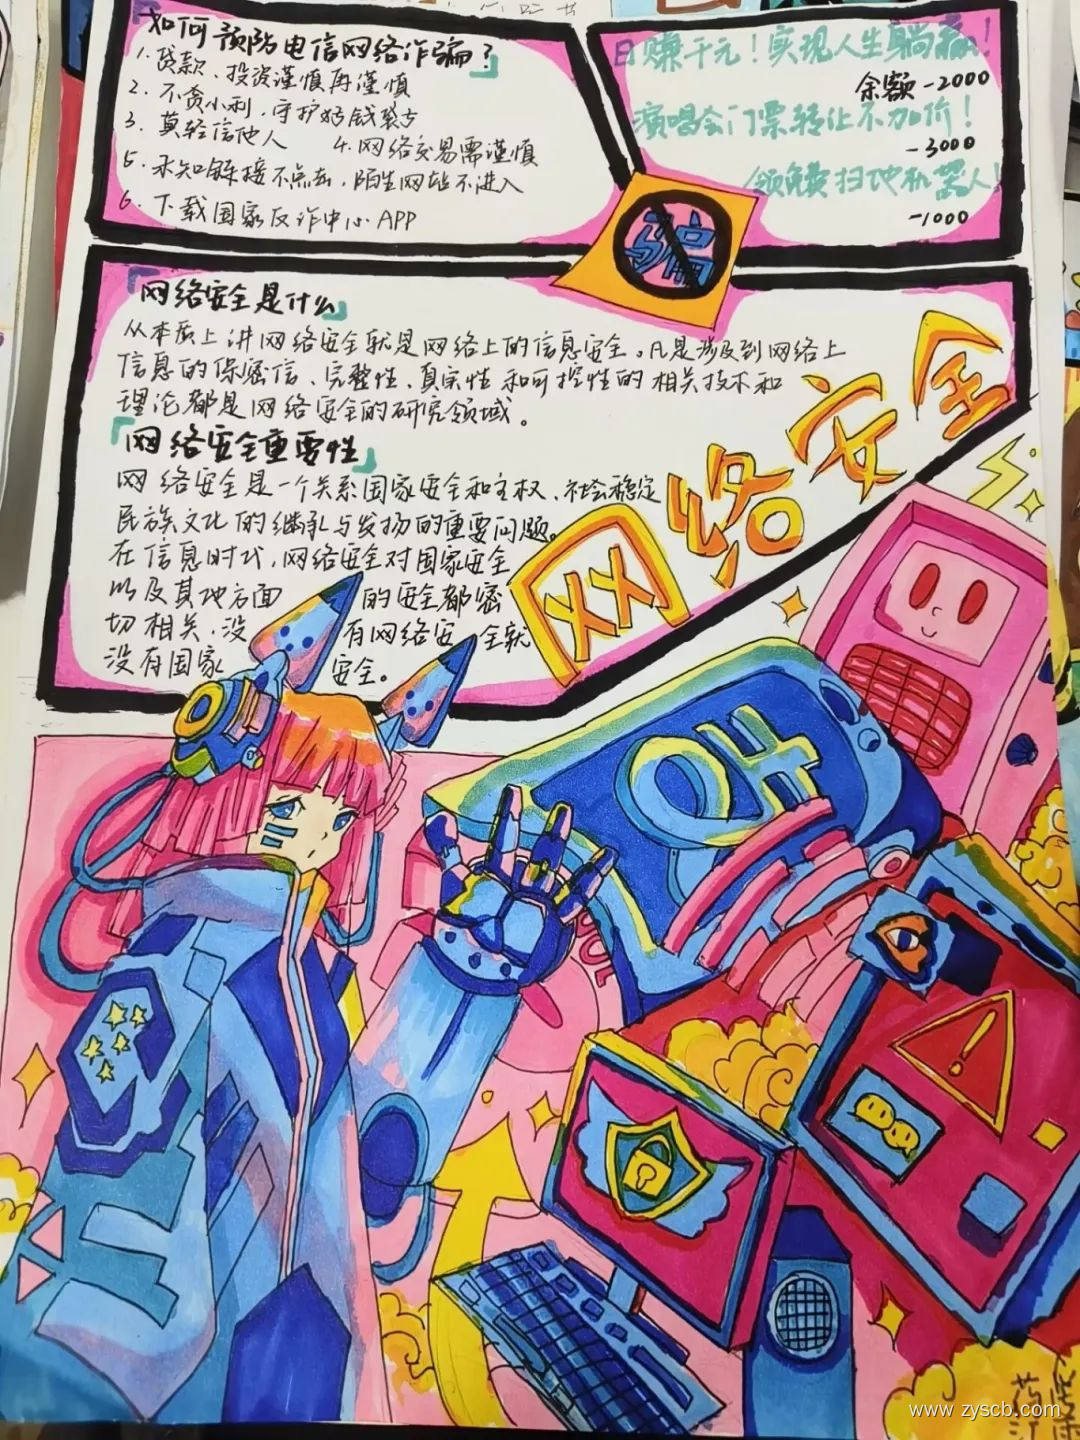 如何预防电信网络诈骗？
1.贷款、投资谨慎再谨慎
2.不贪小利，守护好钱袋
3.莫轻信他人
4.网络交易需谨慎
5.未知链接不点击，陌生网站不进入
6.下载国家反诈中心APP
日赚千元！实现人生躺赢！
余额-2000
演唱会门票转让不加价！
-3000
领免费扫地机器人！
-1000
骗
「网络安全是什么」
从本质上讲网络安全就是网络上的信息安全。凡是涉及到网络上
信息的保密信、完整性、真实性和可控性的相关技术和
理论都是网络安全的研究领域。
「网络安全重要性」
网络安全是一个关系国家安全和主权、社会稳定
民族文化的继承与发扬的重要问题。
在信息时代，网络安全对国家安全
以及其地方面的安全都密
切相关，没有网络安全就
没有国家安全。
网络安全
OH
www.zyscb.com